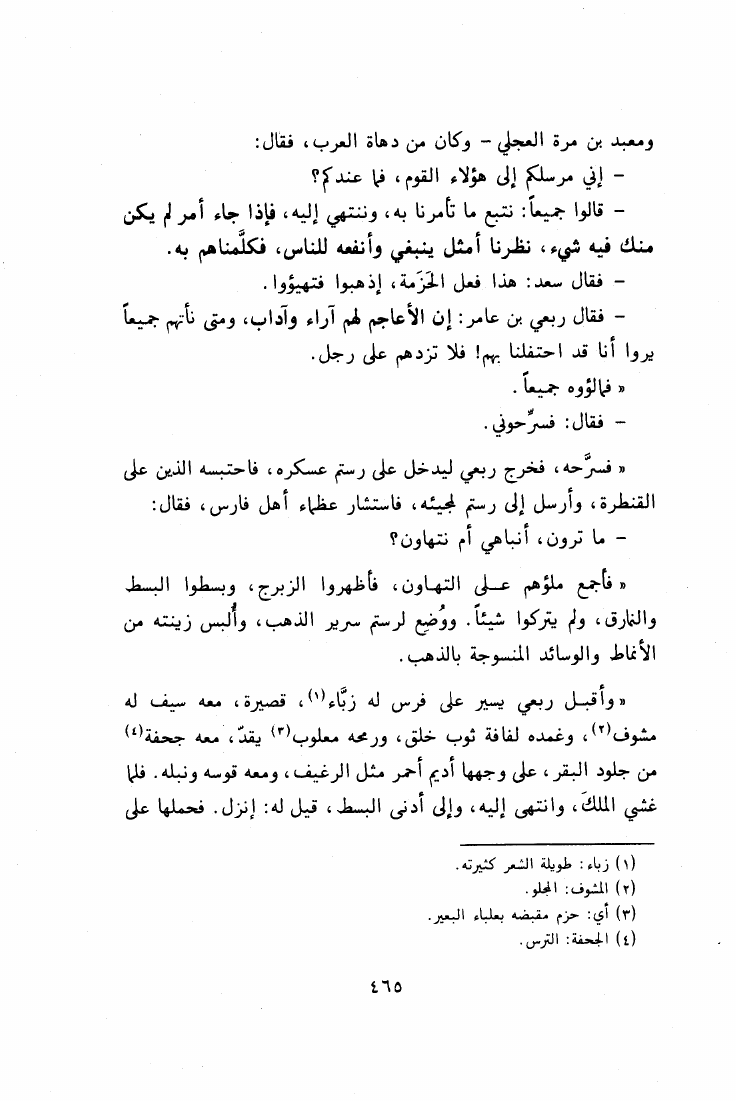 ومعبد بن مرة العجلي - وكان من دهاة العرب، فقال:
- إني مرسلكم إلى هؤلاء القوم، فما عندكم؟
- قالوا جميعاً: نتبع ما تأمرنا به، وننتهي إليه، فإذا جاء أمر لم يكن
منك فيه شيء، نظرنا أمثل ينبغي وأنفعه للناس، فكلَّمناهم به.
- فقال سعد: هذا فعل الحَزَمة، إذهبوا فتهيؤوا.
- فقال ربعي بن عامر: إن الأعاجم لهم آراء وآداب، ومتى نأتهم جميعاً
يروا أنا قد احتفلنا بهم! فلا تزدهم على رجل.
« فمالؤوه جميعاً.
- فقال: فسرِّحوني.
« فسرَّحه، فخرج ربعي ليدخل على رستم عسكره، فاحتبسه الذين على
القنطرة، وأرسل إلى رستم لمجيئه، فاستشار عظماء أهل فارس، فقال:
- ما ترون، أنباهي أم نتهاون؟
« فأجمع ملؤهم على التهاون، فأظهروا الزبرج، وبسطوا البسط
والنمارق، ولم يتركوا شيئاً. ووُضِع لرستم سرير الذهب، وأُلبس زينته من
الأنماط والوسائد المنسوجة بالذهب.
« وأقبل ربعي يسير على فرس له زبَّاء(١)، قصيرة، معه سيف له
مشوف(٢)، وغمده لفافة ثوب خلق، ورمحه معلوب(٣) بقدّ، معه جحفة(٤)
من جلود البقر، على وجهها أديم أحمر مثل الرغيف، ومعه قوسه ونبله. فلما
غشي الملكَ، وانتهى إليه، وإلى أدنى البسط، قيل له: إنزل. فحملها على
(١) زباء: طويلة الشعر كثيرته.
(٢) المشوف: المجلو.
(٣) أي: حزم مقبضه بعلباء البعير.
(٤) الجحفة: الترس.
٤٦٥